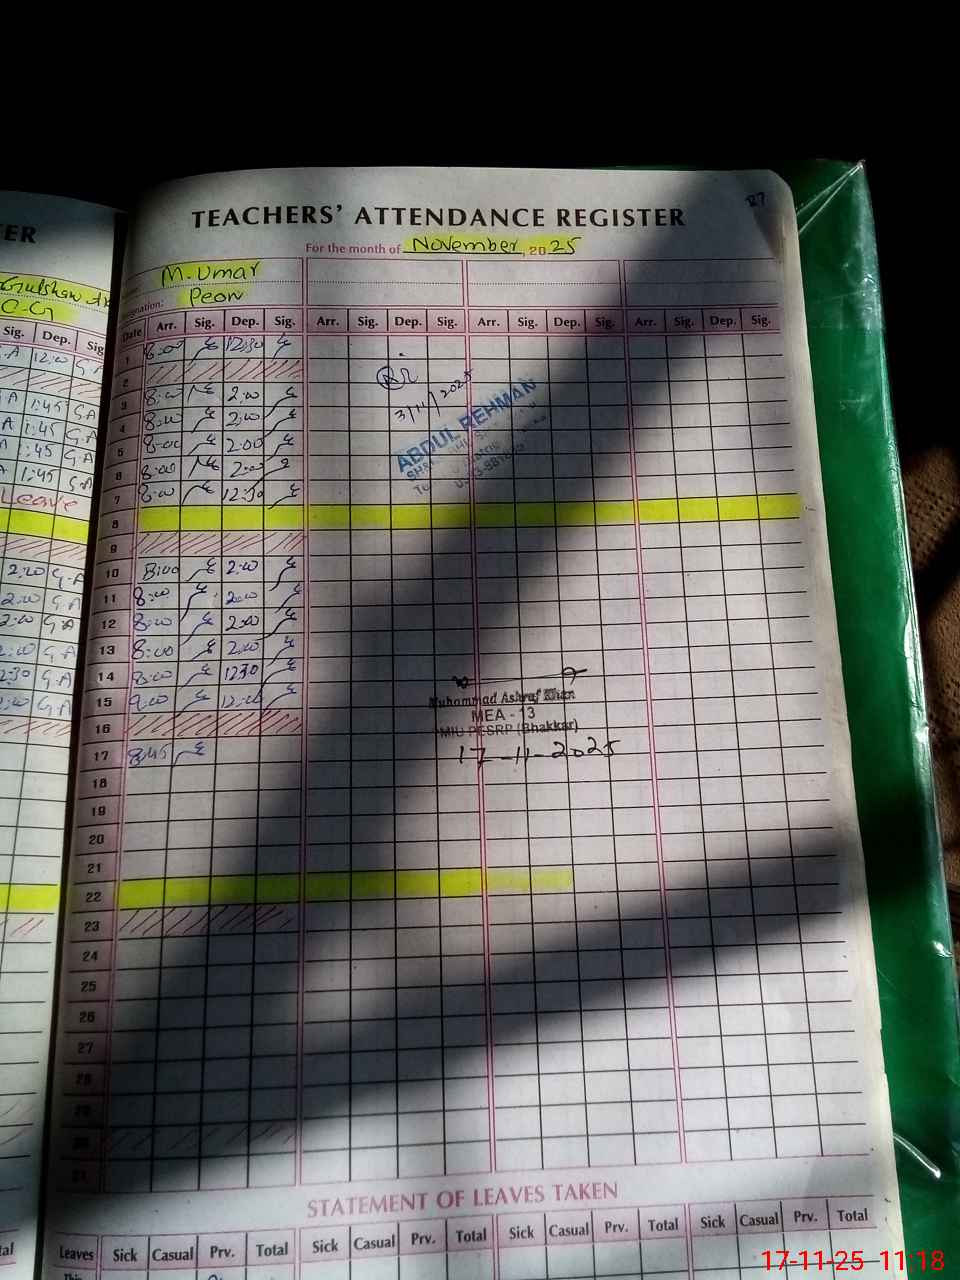 ER
Gulshan
C-G
Sig. Dep. Sig
.A 12:00 G.A
A 1:45 G.A
A 1:45 G.A
A :45 G.A
A 1:45 G.A
Leave
2:00 G.A
2:00 G.A
2:00 G.A
2:00 G.A
2:30 G.A
G.A
TEACHERS' ATTENDANCE REGISTER
27
For the month of November, 2025
M. Umar
Designation: Peon
Date Arr. Sig. Dep. Sig. Arr. Sig. Dep. Sig. Arr. Sig. Dep. Sig. Arr. Sig. Dep. Sig.
1 8:00 12:30
2
3 8:00 2:00
3/11/2025
4 8:00 2:00
5 8:00 2:00
ABDUL REHMAN
6 8:00 2:00
7 8:00 12:30
8
9
10 8:00 2:00
11 8:00 2:00
12 8:00 2:00
13 8:00 2:00
14 8:00 1230
15 9:00 12:00
Muhammad Ashraf Khan
MEA - 13
MIU PESRP (Bhakkar)
17-11-2025
16
17 8:45
18
19
20
21
22
23
24
25
26
27
28
29
30
31
STATEMENT OF LEAVES TAKEN
Leaves Sick Casual Prv. Total Sick Casual Prv. Total Sick Casual Prv. Total Sick Casual Prv. Total
This
17-11-25 11:18